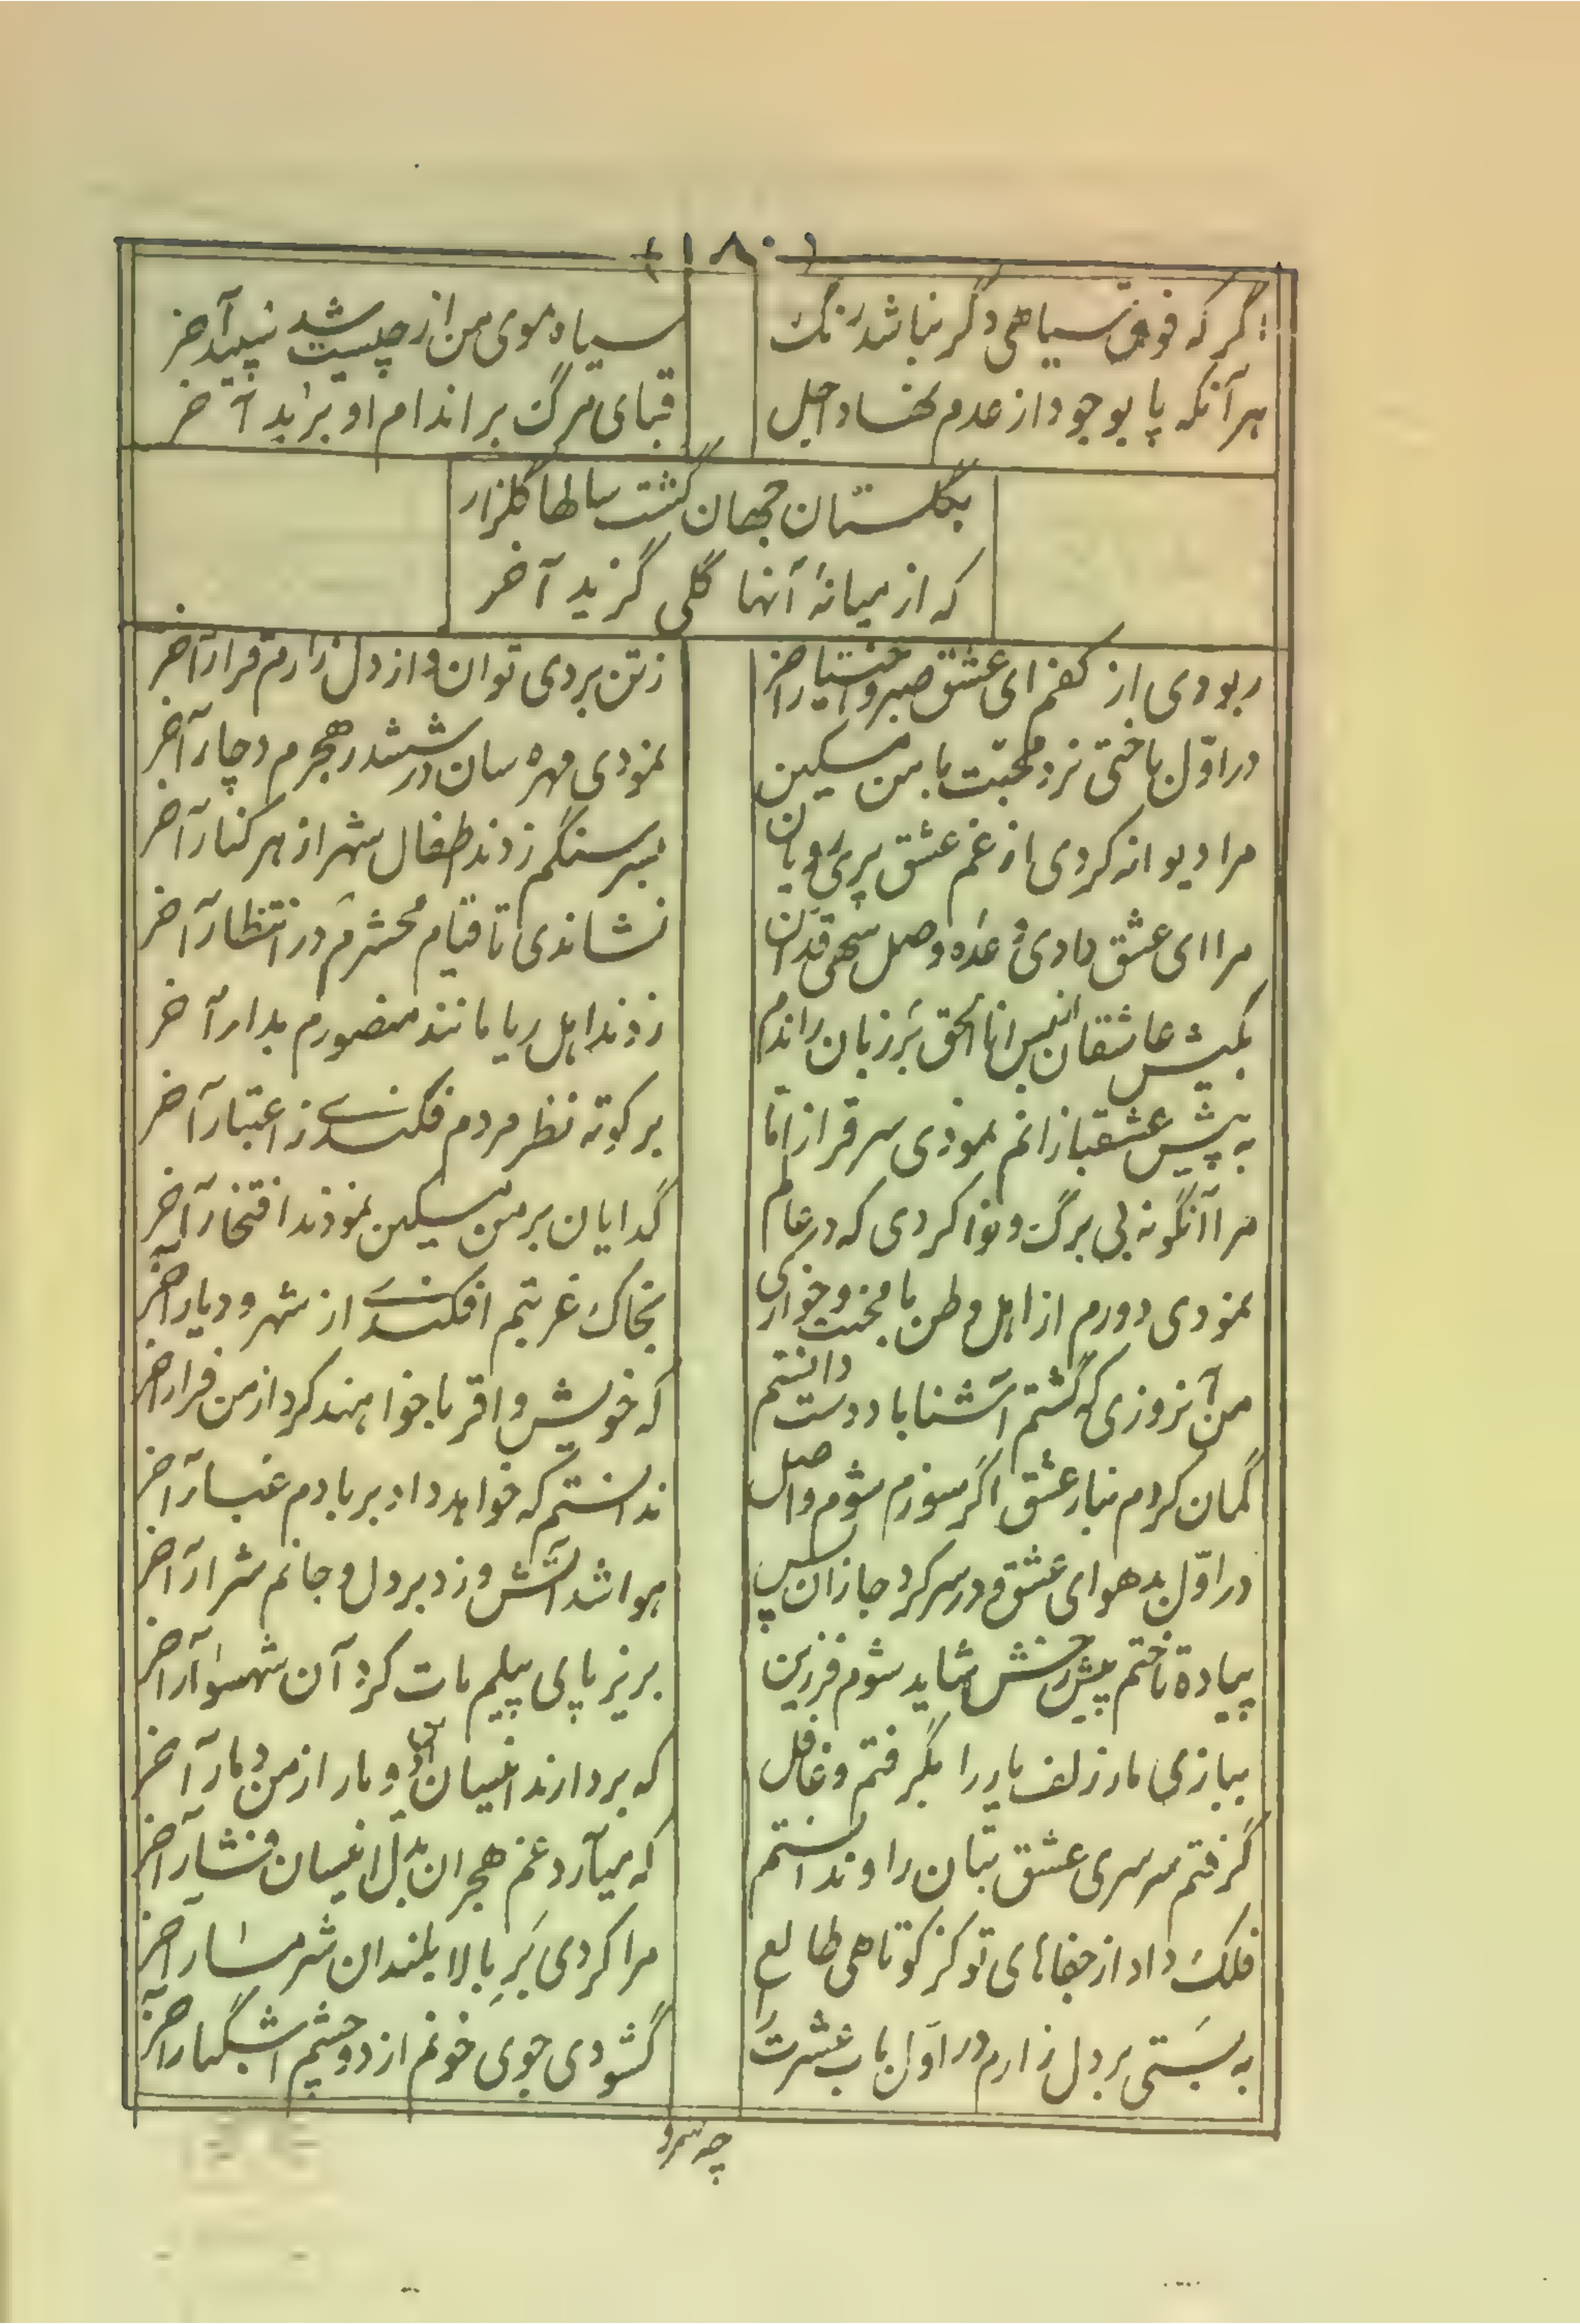 (۱۸۰)
گر که فوق سیاهی دگر نباشد رنگ
سیاه موی من از چیست شد سپید آخر
هر آنکه پا بوجود از عدم نهاد اجل
قبای مرگ بر اندام او برید آخر
بگلستان جهان گشت سالها گلزار
که از میانهٔ آنها گلی گزید آخر
ربودی از کفم ای عشق صبر و اختیار آخر
ز تن بردی توان و از دل زارم قرار آخر
در اوّل باختی نرد محبت با من مسکین
نمودی مهره سان در ششدر هجرم دچار آخر
مرا دیوانه کردی از غم عشق پری رویان
بسر سنگم زدند اطفال شهر از هر کنار آخر
مرا ای عشق دادی وعده وصل سهی قدّان
نشاندی تا قیام محشرم در انتظار آخر
بکیش عاشقان لیس انا الحق بر زبان راندم
زدند اهل ریا مانند منصورم بدار آخر
به پیش عشقبازانم نمودی سرفراز امّا
بر کوته نظر مردم فکندی ز اعتبار آخر
مرا آنگونه بی برگ و نوا کردی که در عالم
گدایان بر من مسکین نمودند افتخار آخر
نمودی دورم از اهل وطن با محنت و خواری
بخاک غربتم افکندی از شهر و دیار آخر
من آنروزی که گشتم آشنا با دوست دانستم
که خویش و اقربا خواهند کرد از من فرار آخر
گمان کردم بنار عشق اگر سوزم شوم واصل
ندانستم که خواهد داد بر بادم غبار آخر
در اوّل بد هوای عشق و در سر کرد جا زان پس
هوا شد آتش و زد بر دل و جانم شرار آخر
پیاده تاختم پیش رخش شاید شوم فرزین
بزیر پای پیلم مات کرد آن شهسوار آخر
ببازی مار زلف یار را بگرفتم و غافل
که بردارند اینسان دو مار از من دمار آخر
گرفتم سرسری عشق بتان را و ندانستم
که میآرد غم هجران بدل اینسان فشار آخر
فلک داد از جفاهای تو کز کوتاهی طالع
مرا کردی بَرِ بالا بلندان شرمسار آخر
به بستی بر دل زارم در اوّل باب عشرت را
گشودی جوی خونم از دو چشم اشکبار آخر
چه سرو